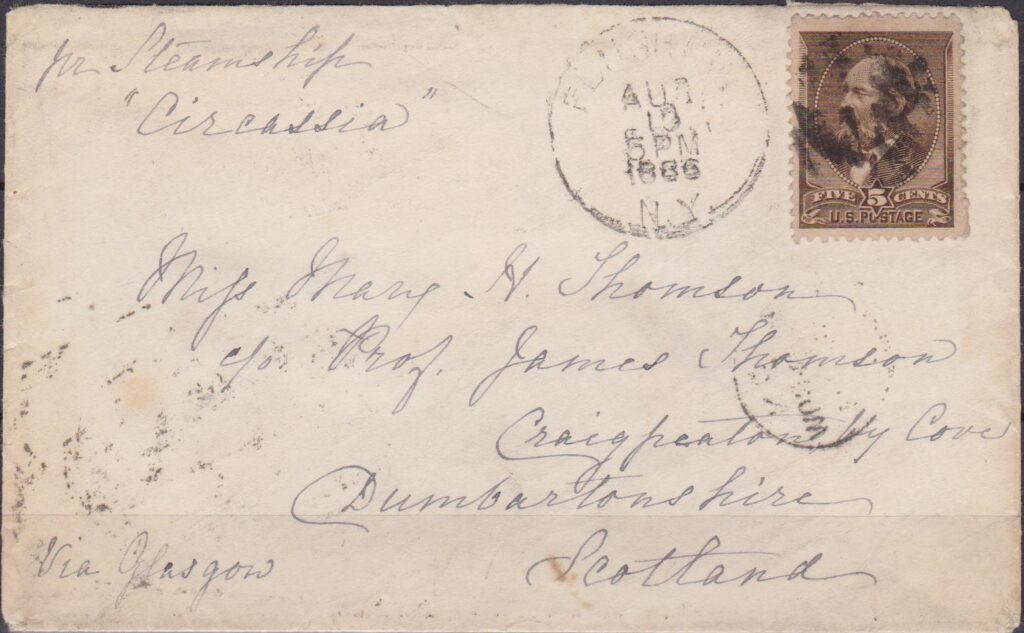 pr Steamship
"Circassia"
AUG
13
5 PM
1886
N.Y.
FIVE 5 CENTS
U.S. POSTAGE
Miss Mary H. Thomson
c/o Prof. James Thomson
Craigpeaton by Cove
Dumbartonshire
Scotland
Via Glasgow